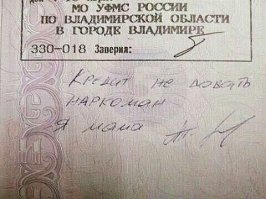 МО УФМС РОССИИ
ПО ВЛАДИМИРСКОЙ ОБЛАСТИ
В ГОРОДЕ ВЛАДИМИРЕ
330-018 Заверил:
Кредит не давать
наркоман
я мама